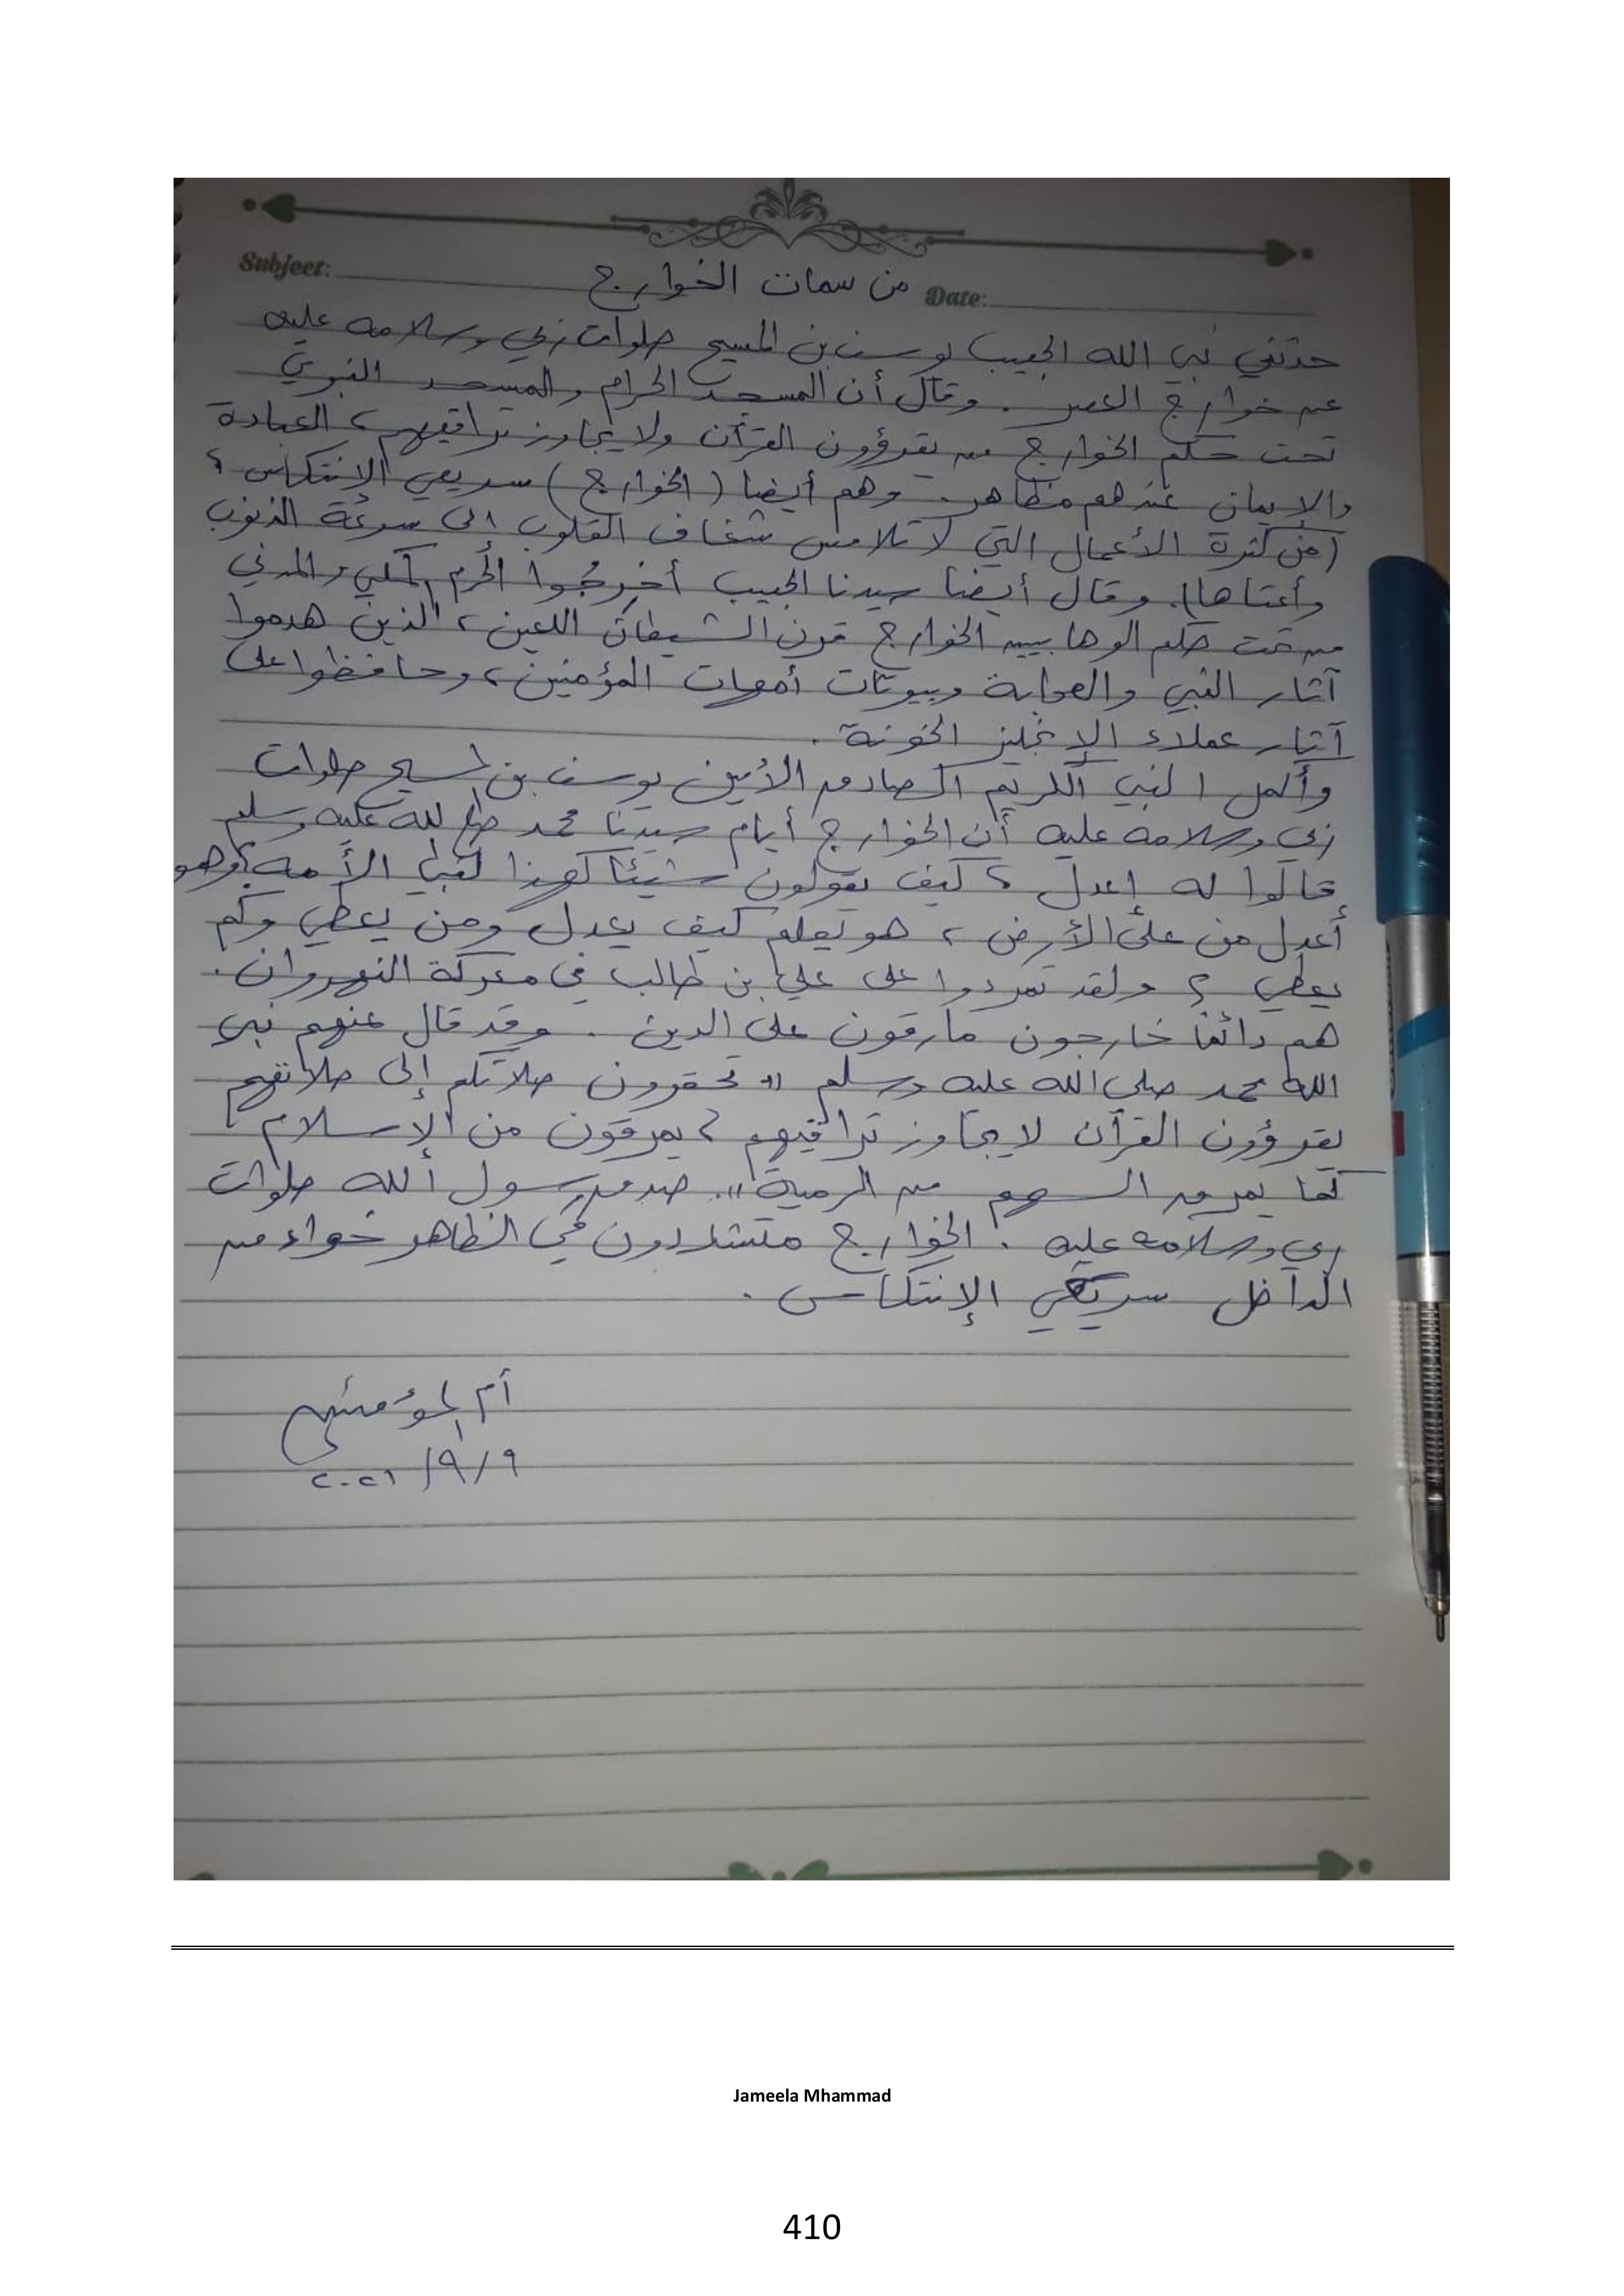 Subject:
Date:
من سمات الخوارج
حدثني نبي الله الحبيب يوسف بن المسيح صلوات ربي وسلامه عليه
عن خوارج العصر . وقال أن المسجد الحرام والمسجد النبوي
تحت حكم الخوارج من يقرؤون القرآن ولا يتجاوز تراقيهم ، العبادة
والإيمان عندهم مظاهر . وهم أيضا ( الخوارج ) سريعي الانتكاس ؟
( من كثرة الأعمال التي لا تلامس شغاف القلوب الى سرعة الذنوب
وأعتاها ) . وقال أيضا سيدنا الحبيب أخرجوا الحرم المكي والمدني
من تحت حكم الوهابيين الخوارج قرن الشيطان اللعين ، الذين هدموا
آثار النبي والصحابة وبيوتات أمهات المؤمنين ، وحافظوا على
آثار عملاء الإنجليز الخونة .
وأكمل النبي الكريم الصادق الأمين يوسف بن المسيح صلوات
ربي وسلامه عليه أن الخوارج أيام سيدنا محمد صلى الله عليه وسلم
قالوا له إعدل ، كيف يقولون شيئا كهذا لنبي الأمة ؟ وهو
أعدل من على الأرض ، هو يعلم كيف يعدل ومن يعطي وكم
يعطي ؟ ولقد تمردوا على علي بن طالب في معركة النهروان .
هم دائما خارجون مارقون على الدين . وقد قال عنهم نبي
الله محمد صلى الله عليه وسلم " تحقرون صلاتكم إلى صلاتهم
يقرؤون القرآن لا يتجاوز تراقيهم ، يمرقون من الإسلام
كما يمرق السهم من الرمية " . صدق رسول الله صلوات
ربي وسلامه عليه . الخوارج متشددون في الظاهر خواء من
الداخل سريعي الإنتكاس .
أم المؤمنين
٩/٩/٢٠٢١
Jameela Mhammad
410